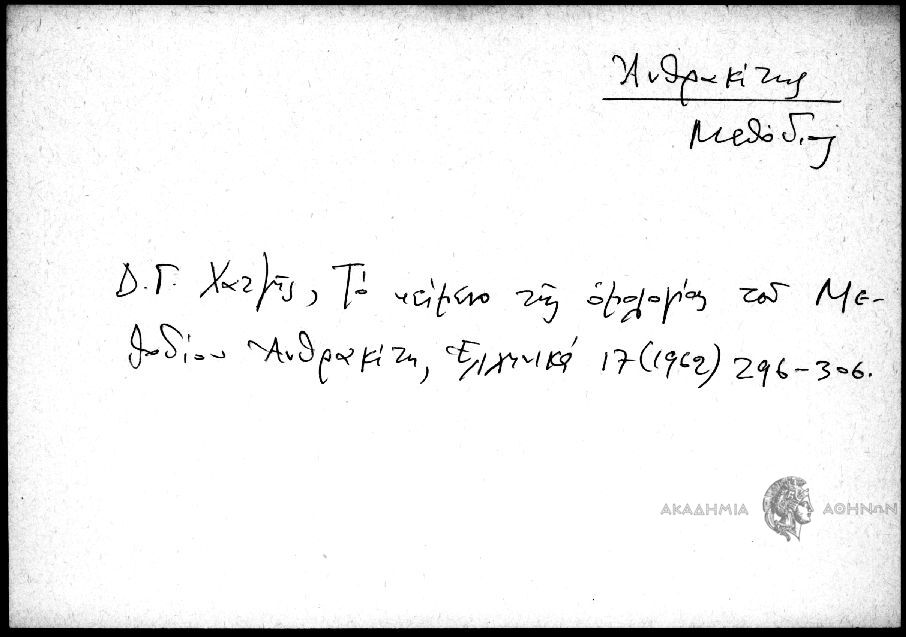 Ἀνθρακίτης
Μεθόδιος
Δ. Γ. Χατζῆς, Τὸ κείμενο τῆς ὁμολογίας τοῦ Με-
θοδίου Ἀνθρακίτη, Ἑλληνικά 17 (1962) 296-306.
ΑΚΑΔΗΜΙΑ ΑΘΗΝΩΝ